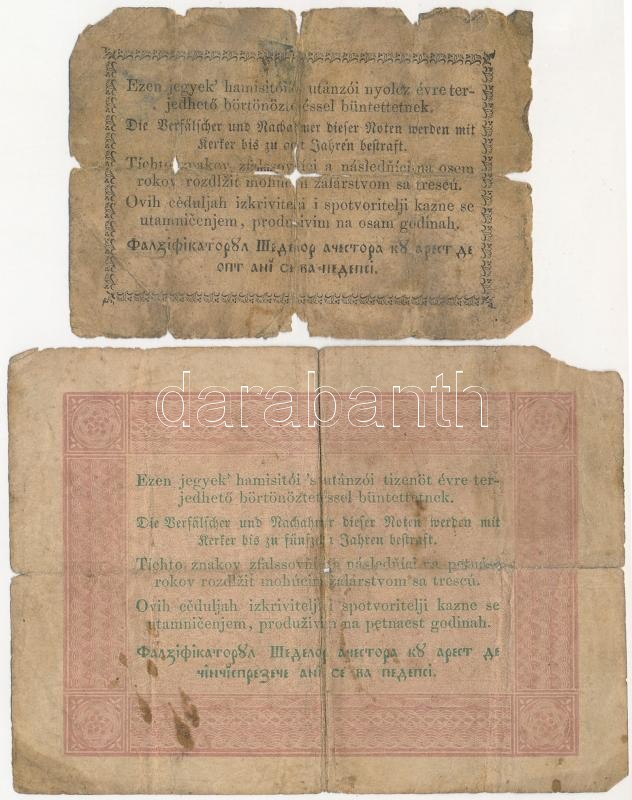 Ezen jegyek' hamisitói 's utánzói nyolcz évre ter-
jedhető börtönöztetéssel büntettetnek.
Die Verfälscher und Nachahmer dieser Noten werden mit
Kerker bis zu acht Jahren bestraft.
Tichto znakov zfalssovňíci a následňíci na osem
rokov rozdlžit mohúcim žalárstvom sa trescú.
Ovih céduljah izkrivitelji i spotvoritelji kazne se
utamničenjem, produživim na osam godinah.
Фалзіфікаторꙋл Шеделор ачестора кꙋ арест де
опт анї се ва педепсі.
darabanth
Ezen jegyek' hamisitói 's utánzói tizenöt évre ter-
jedhető börtönöztetéssel büntettetnek.
Die Verfälscher und Nachahmer dieser Noten werden mit
Kerker bis zu fünfzehn Jahren bestraft.
Tichto znakov zfalssovňíci a následňíci na petnásť
rokov rozdlžit mohúcim žalárstvom sa trescú.
Ovih céduljah izkrivitelji i spotvoritelji kazne se
utamničenjem, produživim na petnaest godinah.
Фалзіфікаторꙋл Шеделор ачестора кꙋ арест де
чінчіспрезече анї се ва педепсі.